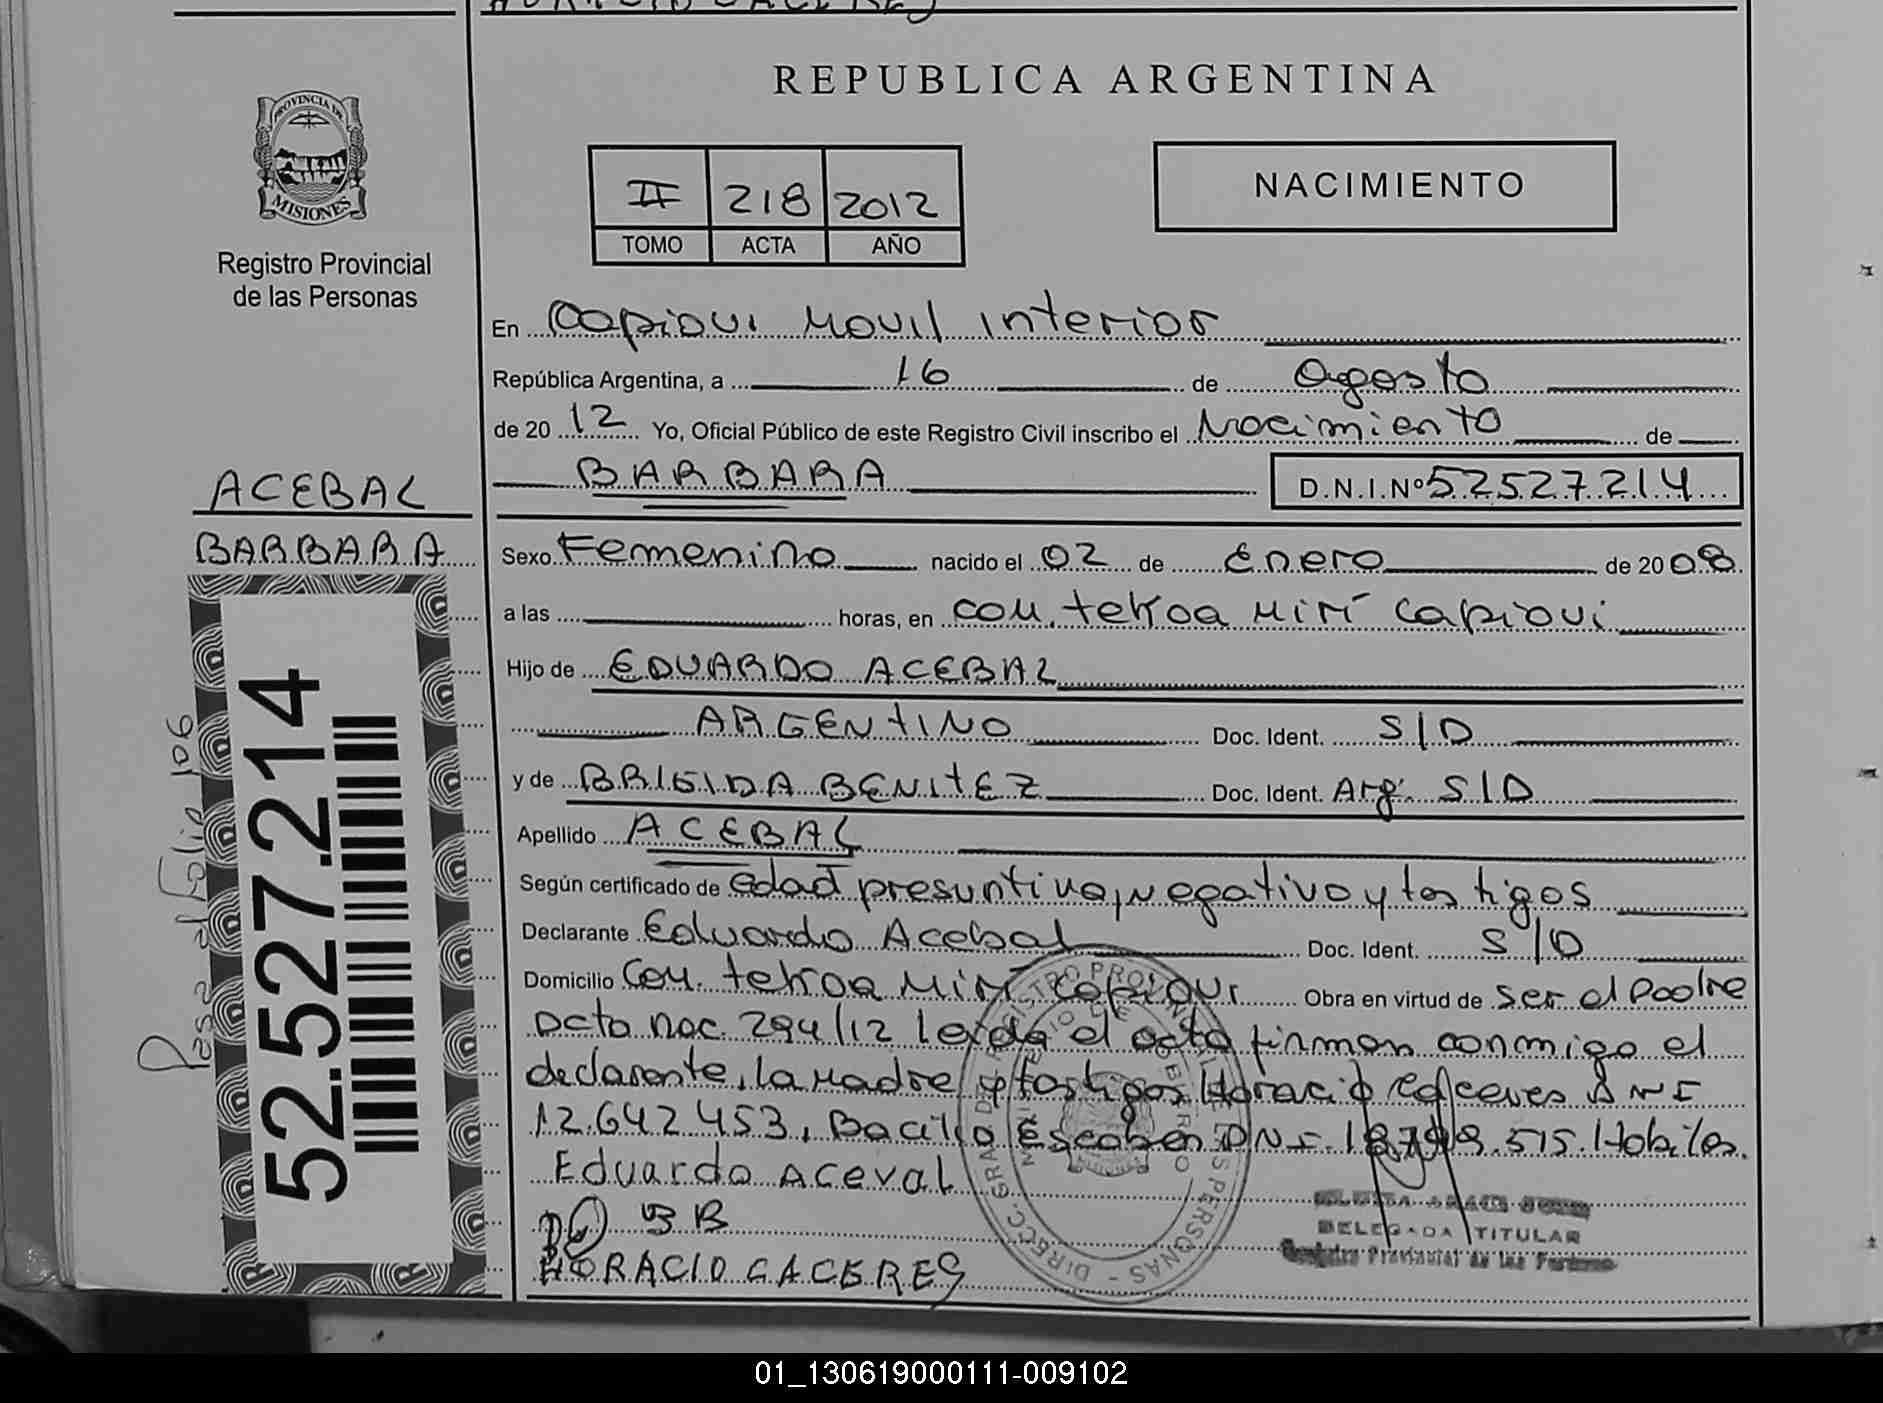 REPUBLICA ARGENTINA
PROVINCIA DE
MISIONES
Registro Provincial
de las Personas
II 218 2012
TOMO ACTA AÑO
NACIMIENTO
En Capiovi Movil interior
República Argentina, a 16 de agosto
de 20 12 Yo, Oficial Público de este Registro Civil inscribo el Nacimiento de
BARBARA D.N.I.Nº 52527214
ACEBAL
BARBARA
Sexo Femenino nacido el 02 de Enero de 20 08
a las horas, en com. tekoa Mirí Capiovi
Hijo de EDUARDO ACEBAL
ARGENTINO Doc. Ident. S/D
y de BRIGIDA BENITEZ Doc. Ident. Arg. S/D
Apellido ACEBAL
Según certificado de edad presuntiva, negativo y testigos
Declarante Eduardo Acebal Doc. Ident. S/D
Domicilio Com. tekoa Mirí Capiovi Obra en virtud de ser el padre
Dcto nac. 294/12 leida el acta firman conmigo el
declarante, la madre y testigos Horacio DNI
12.642.453, Bacilio Escobar DNI 515. Habiles.
Eduardo Aceval
BB
HORACIO CACERES
DELEGADA TITULAR
Registro Provincial de las Personas
52.527.214
Pasa al Folio 106
01_130619000111-009102